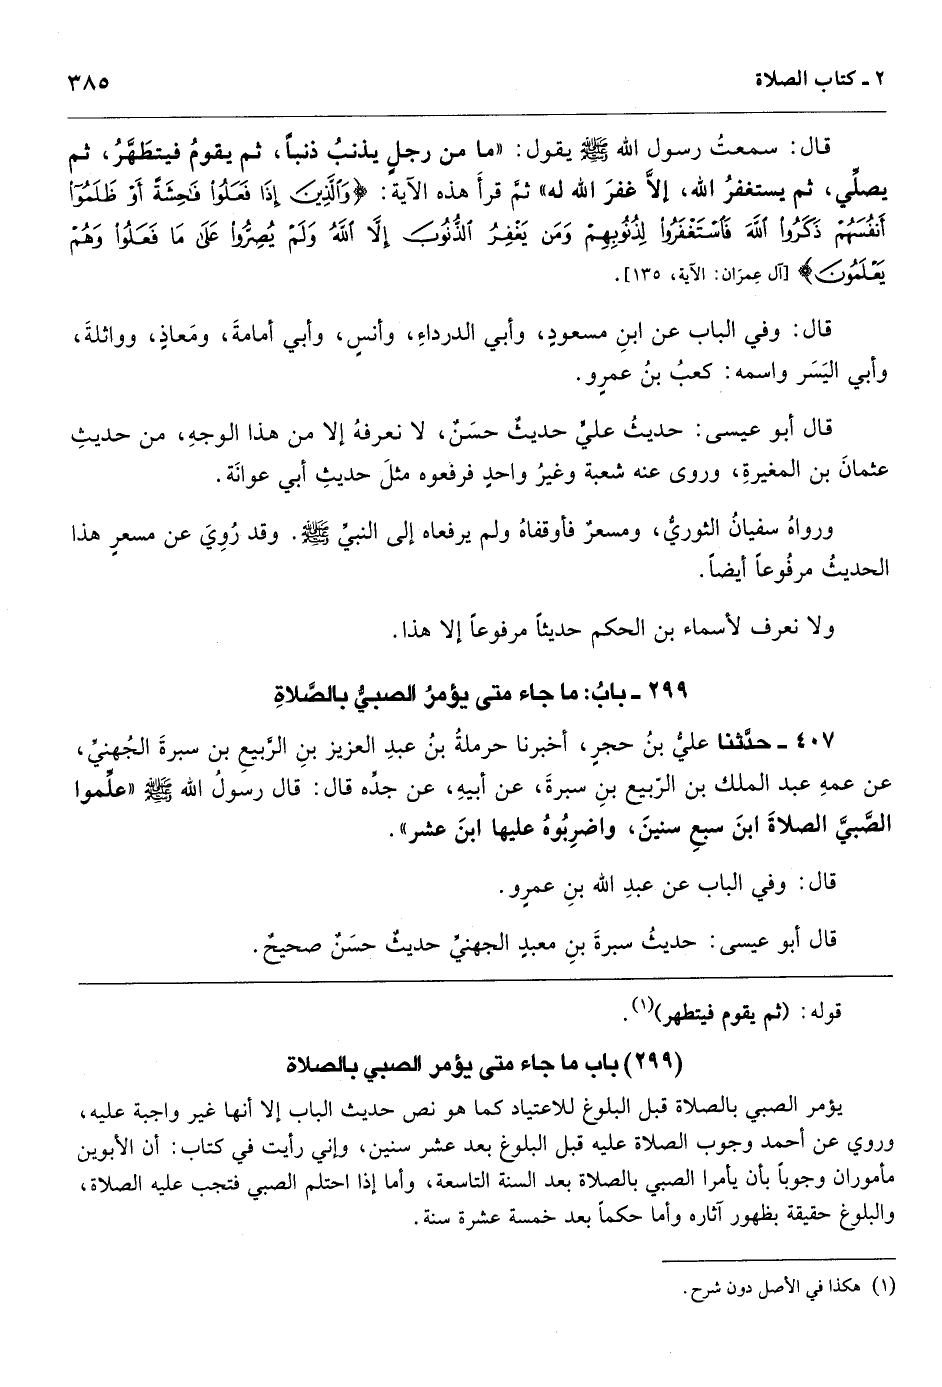 ٢ ـ كتاب الصلاة ٣٨٥
قال: سمعتُ رسول الله ﷺ يقول: «ما من رجلٍ يذنبُ ذنباً، ثم يقومُ فيتطَهَّرُ، ثم
يصلِّي، ثم يستغفرُ الله، إلاَّ غفرَ الله له» ثمَّ قرأَ هذه الآية: ﴿وَالَّذِينَ إِذَا فَعَلُوا۟ فَـٰحِشَةً أَوْ ظَلَمُوٓا۟
أَنفُسَهُمْ ذَكَرُوا۟ ٱللَّهَ فَٱسْتَغْفَرُوا۟ لِذُنُوبِهِمْ وَمَن يَغْفِرُ ٱلذُّنُوبَ إِلَّا ٱللَّهُ وَلَمْ يُصِرُّوا۟ عَلَىٰ مَا فَعَلُوا۟ وَهُمْ
يَعْلَمُونَ﴾ [آل عِمرَان: الآية، ١٣٥].
قال: وفي الباب عن ابنِ مسعودٍ، وأبي الدرداءِ، وأنسٍ، وأبي أمامةَ، ومَعاذٍ، وواثلةَ،
وأبي اليَسَر واسمه: كعبُ بنُ عمرٍو.
قال أبو عيسى: حديثُ عليٍّ حديثٌ حسَنٌ، لا نعرفهُ إلا من هذا الوجهِ، من حديثِ
عثمانَ بن المغيرةِ، وروى عنه شعبة وغيرُ واحدٍ فرفعوه مثلَ حديثِ أبي عوانَة.
ورواهُ سفيانُ الثوريُّ، ومسعرٌ فأوقفاهُ ولم يرفعاه إلى النبيِّ ﷺ. وقد رُوِيَ عن مسعرٍ هذا
الحديثُ مرفُوعاً أيضاً.
ولا نعرف لأسماء بن الحكم حديثاً مرفوعاً إلا هذا.
٢٩٩ ـ بابُ: ما جاء متى يؤمرُ الصبيُّ بالصَّلاةِ
٤٠٧ ـ حدَّثنا عليُّ بنُ حجرٍ، أخبرنا حرملةُ بنُ عبدِ العزيز بنِ الرَّبيعِ بن سبرةَ الجُهنيِّ،
عن عمهِ عبد الملك بن الرّبيع بنِ سبرةَ، عن أبيهِ، عن جدِّه قال: قال رسولُ الله ﷺ «علِّموا
الصَّبيَّ الصلاةَ ابنَ سبعِ سنينَ، واضرِبُوهُ عليها ابنَ عشر».
قال: وفي الباب عن عبدِ الله بنِ عمرٍو.
قال أبو عيسى: حديثُ سبرةَ بنِ معبدٍ الجهنيِّ حديثٌ حسَنٌ صحيحٌ.
قوله: (ثم يقوم فيتطهر)(١).
(٢٩٩) باب ما جاء متى يؤمر الصبي بالصلاة
يؤمر الصبي بالصلاة قبل البلوغ للاعتياد كما هو نص حديث الباب إلا أنها غير واجبة عليه،
وروي عن أحمد وجوب الصلاة عليه قبل البلوغ بعد عشر سنين، وإني رأيت في كتاب: أن الأبوين
مأموران وجوباً بأن يأمرا الصبي بالصلاة بعد السنة التاسعة، وأما إذا احتلم الصبي فتجب عليه الصلاة،
والبلوغ حقيقة بظهور آثاره وأما حكماً بعد خمسة عشرة سنة.
(١) هكذا في الأصل دون شرح.